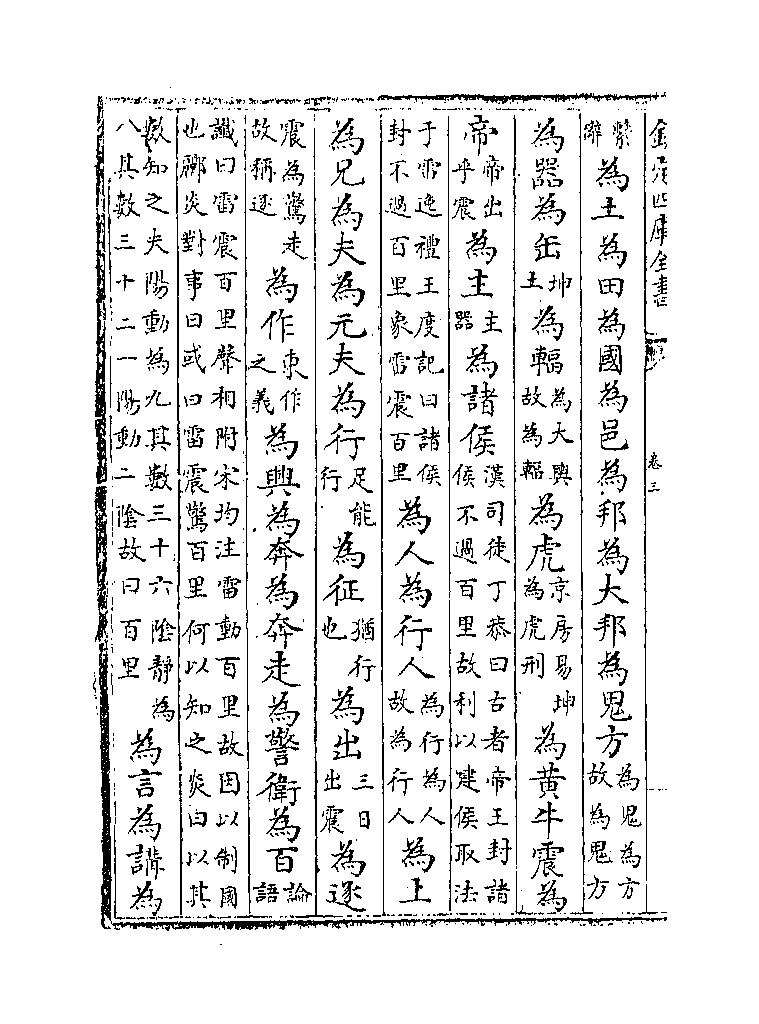 欽定四庫全書 卷三
繫辭為土為田為國為邑為邦為大邦為鬼方為鬼為方故為鬼方
為器為缶坤土為輻為大輿故為輻為虎京房易坤為虎刑為黃牛震為
帝帝出乎震為主主器為諸侯漢司徒丁恭曰古者帝王封諸侯不過百里故利以建侯取法
于雷逸禮王度記曰諸侯封不過百里象雷震百里為人為行人為行為人故為行人為上
為兄為夫為元夫為行足能行為征猶行也為出三日出震為逐
震為驚走故稱逐為作東作之義為興為奔為奔走為警衛為百論語
讖曰雷震百里聲相附宋均注雷動百里故因以制國也酈炎對事曰或曰雷震驚百里何以知之炎曰以其
數知之夫陽動為九其數三十六陰靜為八其數三十二一陽動二陰故曰百里為言為講為